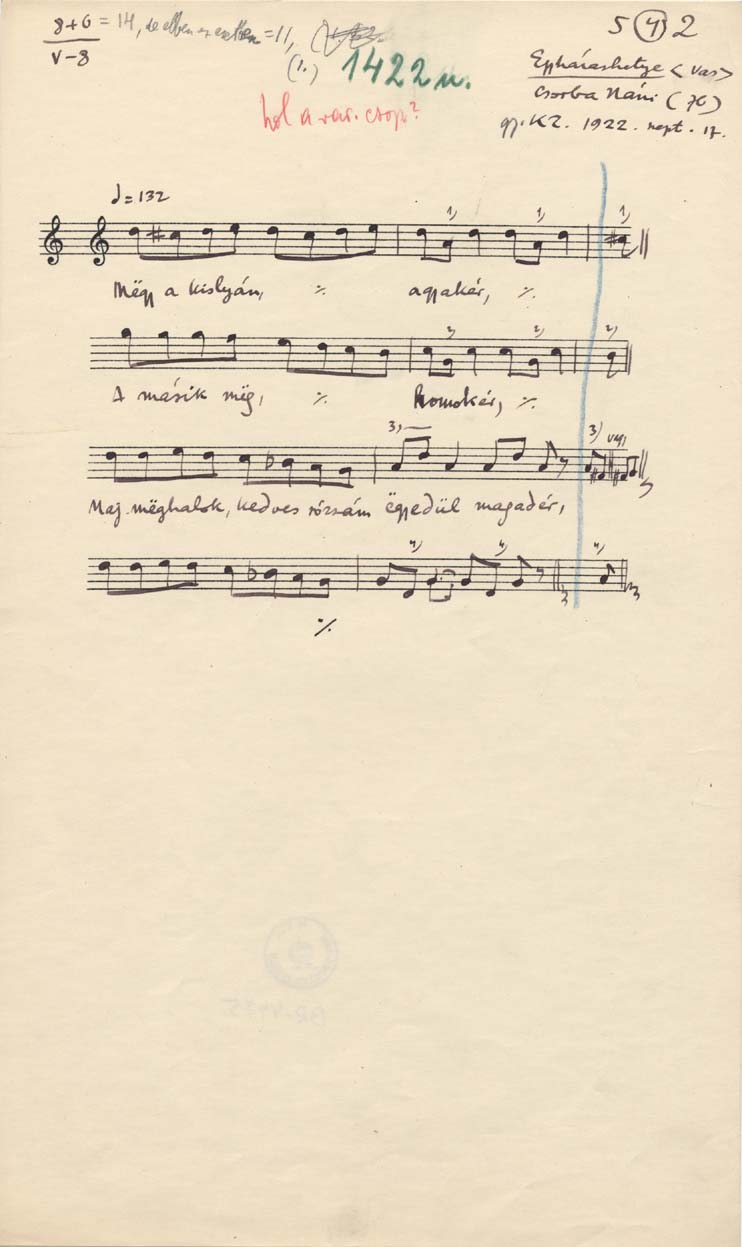 8+6 = 14, de ebben az esetben = 11,
V-8
(1.) 1422 u.
hol a var. csop?
5 (4) 2
Egyházashetye <Vas>
Csorba Náni (76)
gy. KZ. 1922. szept. 17.
♩= 132
1) 1) 1)
Mëgy a kislyán, ./. agyakér, ./.
2) 2) 2)
A másik mëg, ./. homokér, ./.
3) 3) vagy
Maj mëghalok, kedves rózsám ëgyedül magadér,
4) 4) 4)
./.